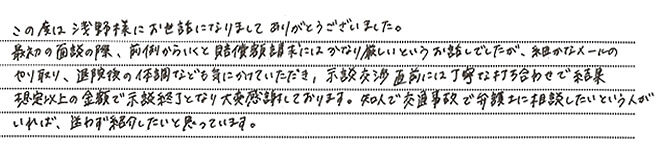 この度は浅野様にお世話になりましてありがとうございました。
最初の面談の際、前例からいくと賠償額請求にはかなり厳しいというお話しでしたが、細かなメールの
やり取り、退院後の体調なども気にかけていただき、示談交渉直前には丁寧な打ち合わせで結果
想定以上の金額で示談終了となり大変感謝しております。知人で交通事故で弁護士に相談したいという人が
いれば、迷わず紹介したいと思っています。